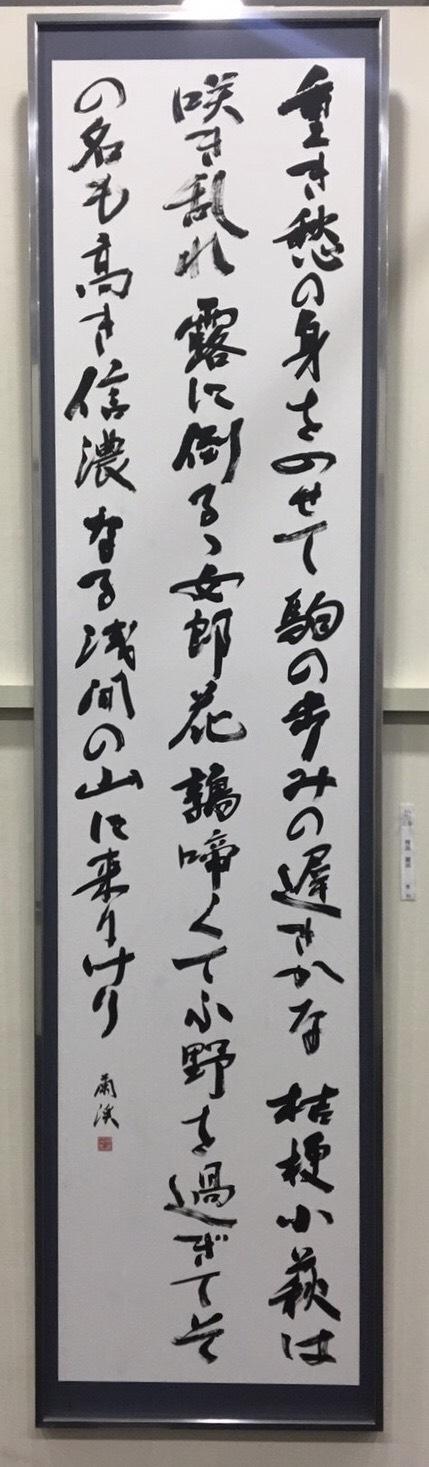 重き愁の身をのせて駒の歩みの遅きかな桔梗小萩は
咲き乱れ露に倒るゝ女郎花鶉啼くてふ野を過ぎてそ
の名も高き信濃なる浅間の山に来りけり